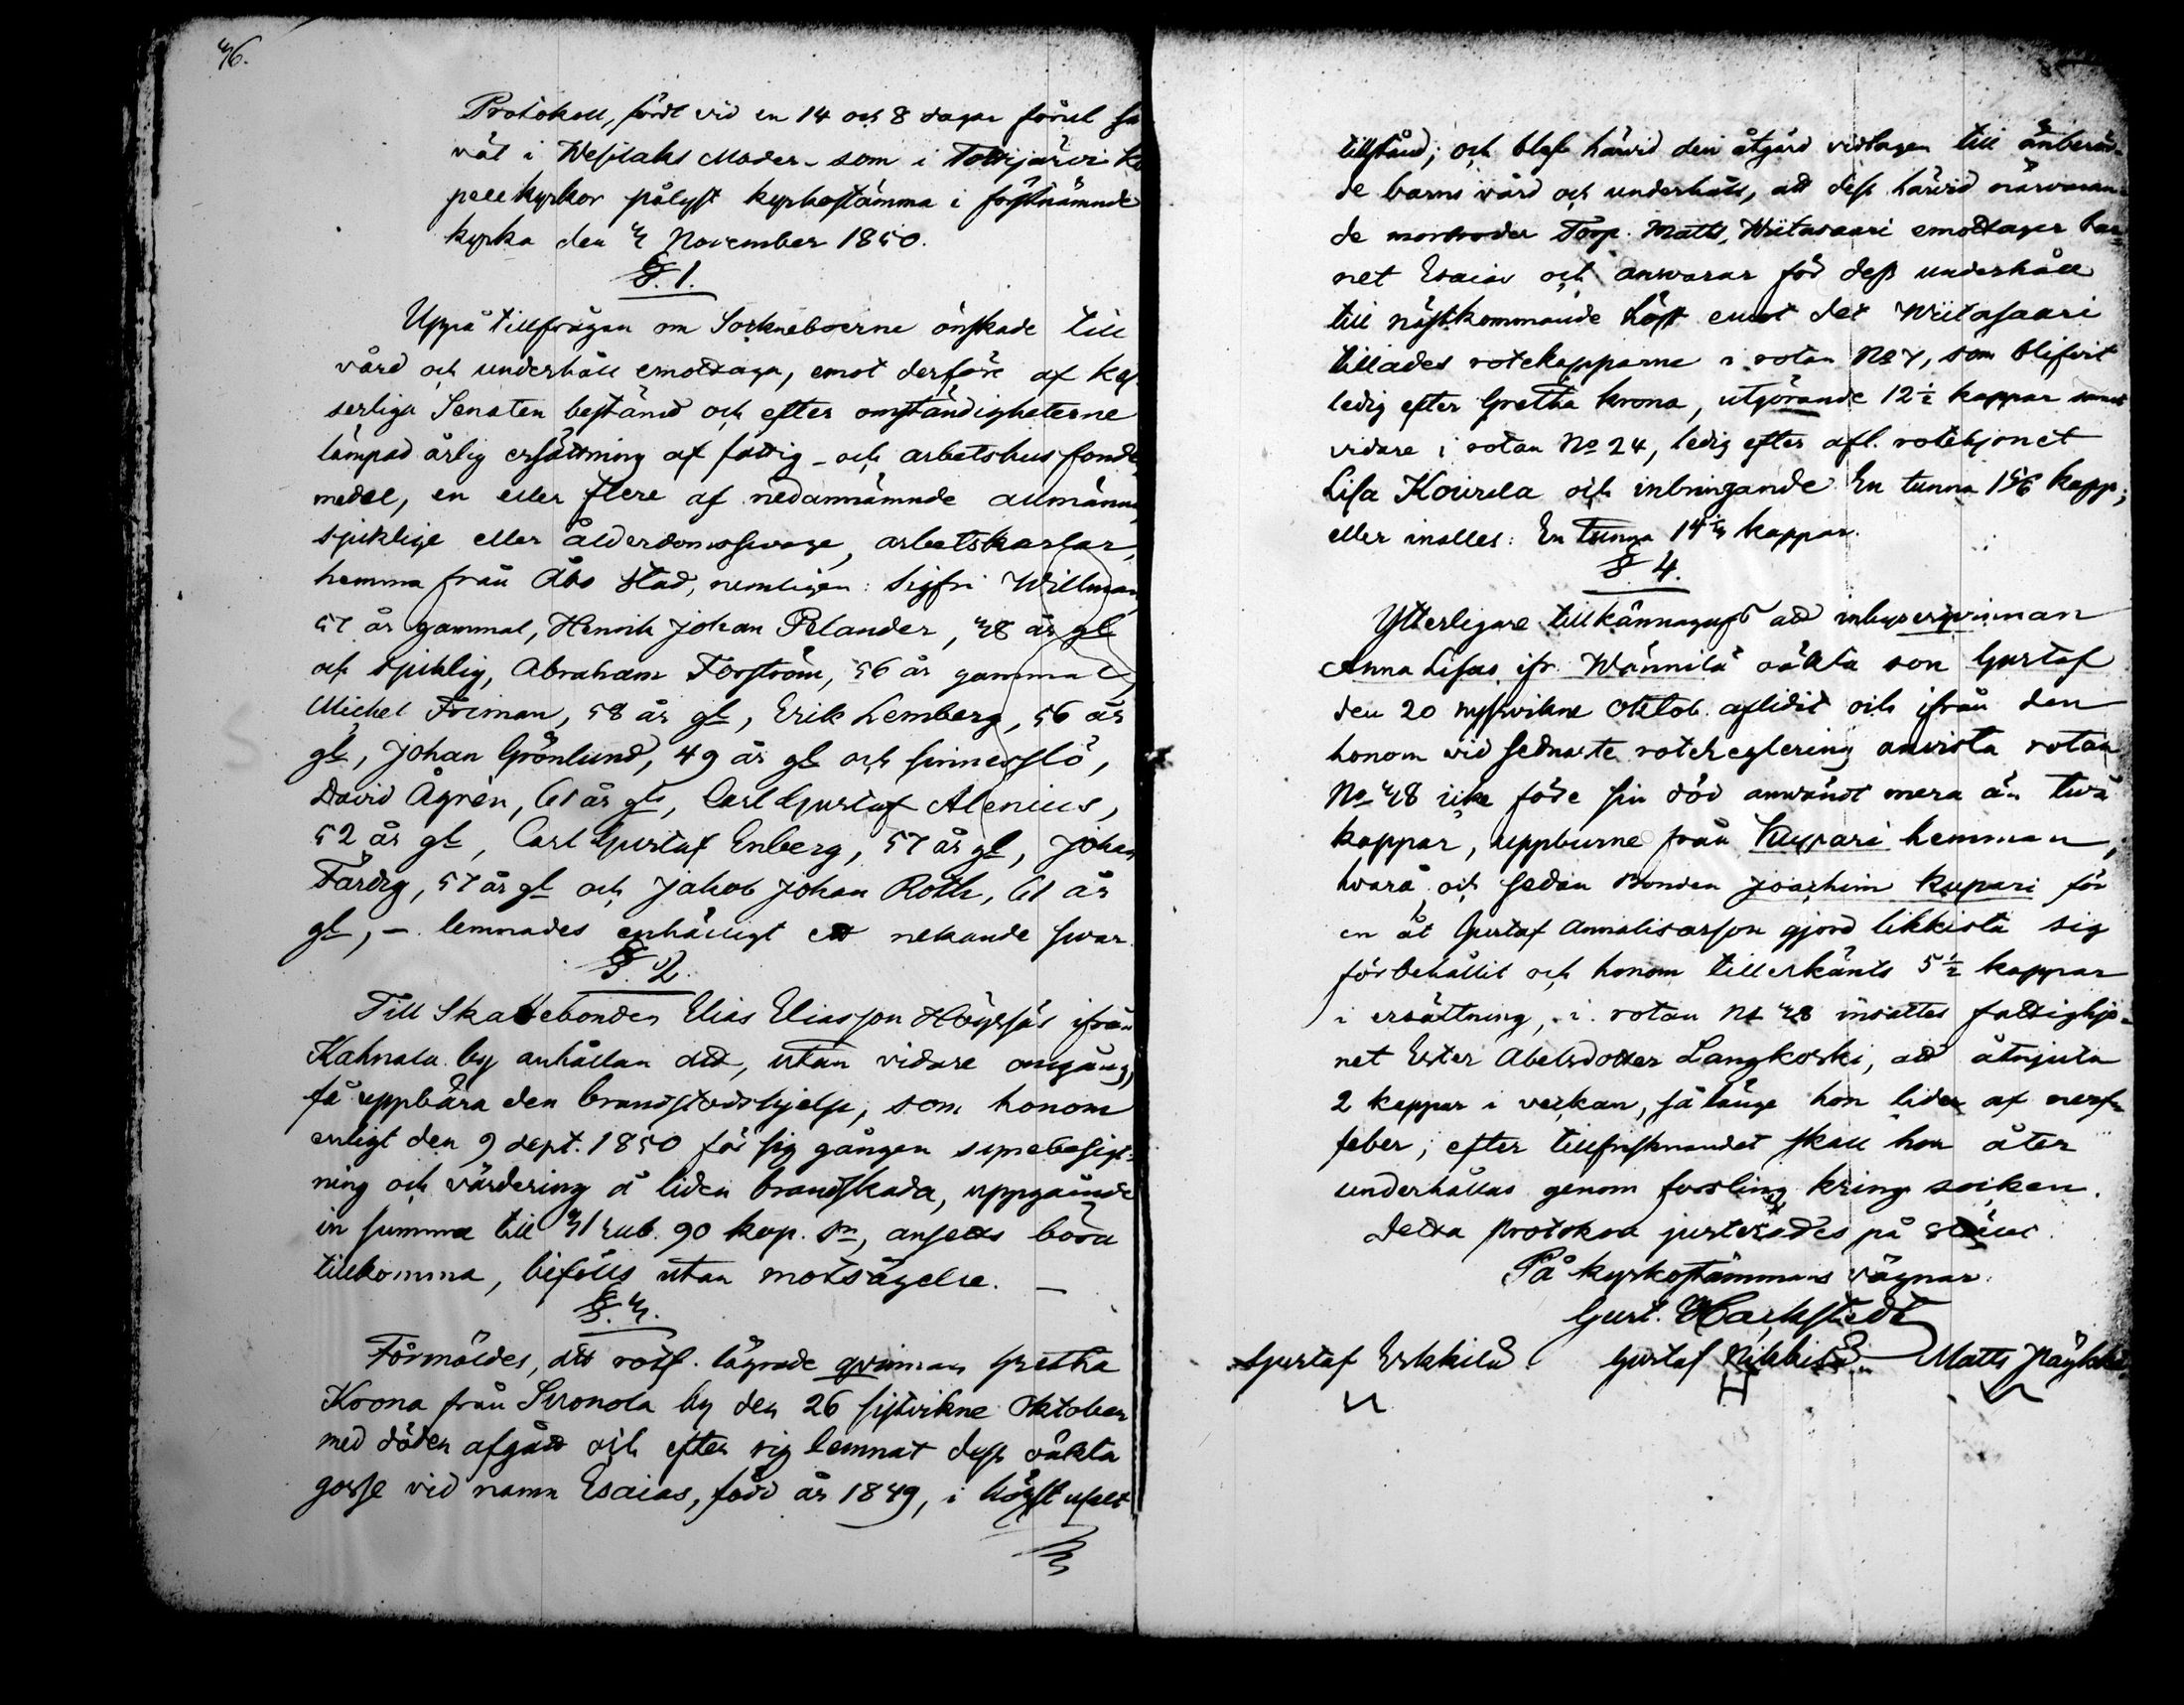 46.
Protokoll, fördt vid en 14 och 8 dagar förut så
väl i Wesilaks Moder- som i Tottijärvi ka
pellkyrkor pålyst kyrkostämma i förstnämnde
kyrka den 3 November 1850.
§. 1.
Uppå tillfrågan om Sockneboerne önskade till
vård och underhåll emottaga, emot derföre af Kej-
serliga Senaten bestämd och efter omständigheterne
lämpad årlig ersättning af fattig- och arbetshusfonds
medel, en eller flere af nedannämnde allmänna,
sjuklige eller ålderdomssvage, arbetskarlar,
hemma från Åbo stad, nemligen: Sigfri Willman
57 år gammal, Henrik Johan Pelander, 48 år gl
och sjuklig, Abraham Forström, 56 år gammal,
Michel Froman, 58 år gl, Erik Lemberg, 56 år
gl, Johan Grönlund, 49 år gl och sinnesslö,
David Ågrèn, 61 år gl, Carl Gustaf Alenius,
52 år gl, Carl Gustaf Enberg, 57 år gl, Johan
Färdig, 57 år gl och Jakob Johan Roth, 61 år
gl, – lemnades enhälligt ett nekande svar.
§. 2.
Till Skattebonden Elias Eliasson ifrån
Kahnala by anhållan att, utan vidare omgång,
få uppbära den brandstodshjelp, som honom
enligt den 9 Sept. 1850 för sig gången synebesigt-
ning och värdering å liden brandskada, uppgående
in summa till 31 rub. 90 kop. Sr, ansetts böra
tillkomma, bifölls utan motsägelse. –
§. 3.
Förmäldes, att rotf. lägrade qvinnan Gretha
Krona från Suonola by den 26 sistvikne Oktober
med döden afgått och efter sig lemnat dess oäkta
gosse vid namn Esaias, född år 1849, i högst uselt
tillstånd; och blef härvid den åtgärd vidtagen till ånberäd-
de barns vård och underhåll, att dess härvid närvaran-
de morbroder Torp. Matts Wiitasaari emottager bar-
net Esaias och ansvarar för dess underhåll
till nästkommande höst emot det Wiitasaari
tillades rotekapparne i rotan No 7, som blifvit
ledig efter Gretha Krona, utgörande 12 ½ kappar samt
vidare i rotan No 24, ledig efter afl. rotehjonet
Lisa Kourla och inbringande En tunna kapp;
eller inalles: En Tunna 14 kappar.
§ 4.
Ytterligare tillkännagafs att inhyserqvinnan
Anna Lisas ifr. Wännilä oäkta son Gustaf
den 20 nyssvikne Oktob. aflidit och ifrån den
honom vid sednaste rotereglering anvista rotan
No 48 icke före sin död användt mera än två
kappar, uppburne från Kupari hemman,
hvarå och sedan Bonden Joachim Kupari för
en åt Gustaf Annalisasson gjord likkista sig
förbehållit och honom tillerkänts 5 ½ kappar
i ersättning, i rotan No 48 insattes fattighjo-
net Ester Abelsdotter Langkoski, att åtnjuta
2 kappar i veckan, så länge hon lider af nerf-
feber; efter tillfrisknandet skall hon åter
underhållas genom forsling kring socken.
Detta protokoll justerades på stället.
På kyrkostämmans vägnar:
Gust. Hackstedt
Gustaf Erkkilä Gustaf Nikkilä Matts